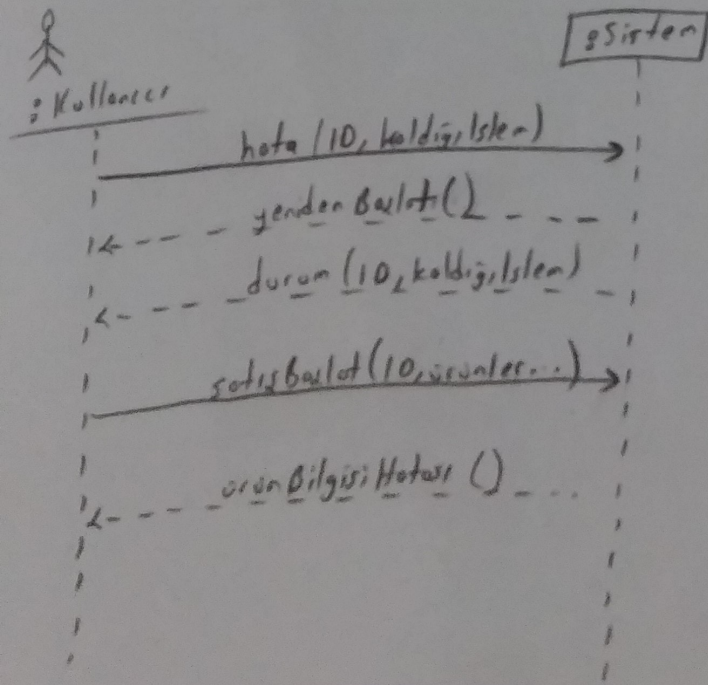 :Kullanıcı
:Sistem
hata (10, kaldığıİslem)
yenidenBaslat()
durum (10, kaldığıİslem)
satışBaslat(10, ürünler...)
ürünBilgisiHatası ()